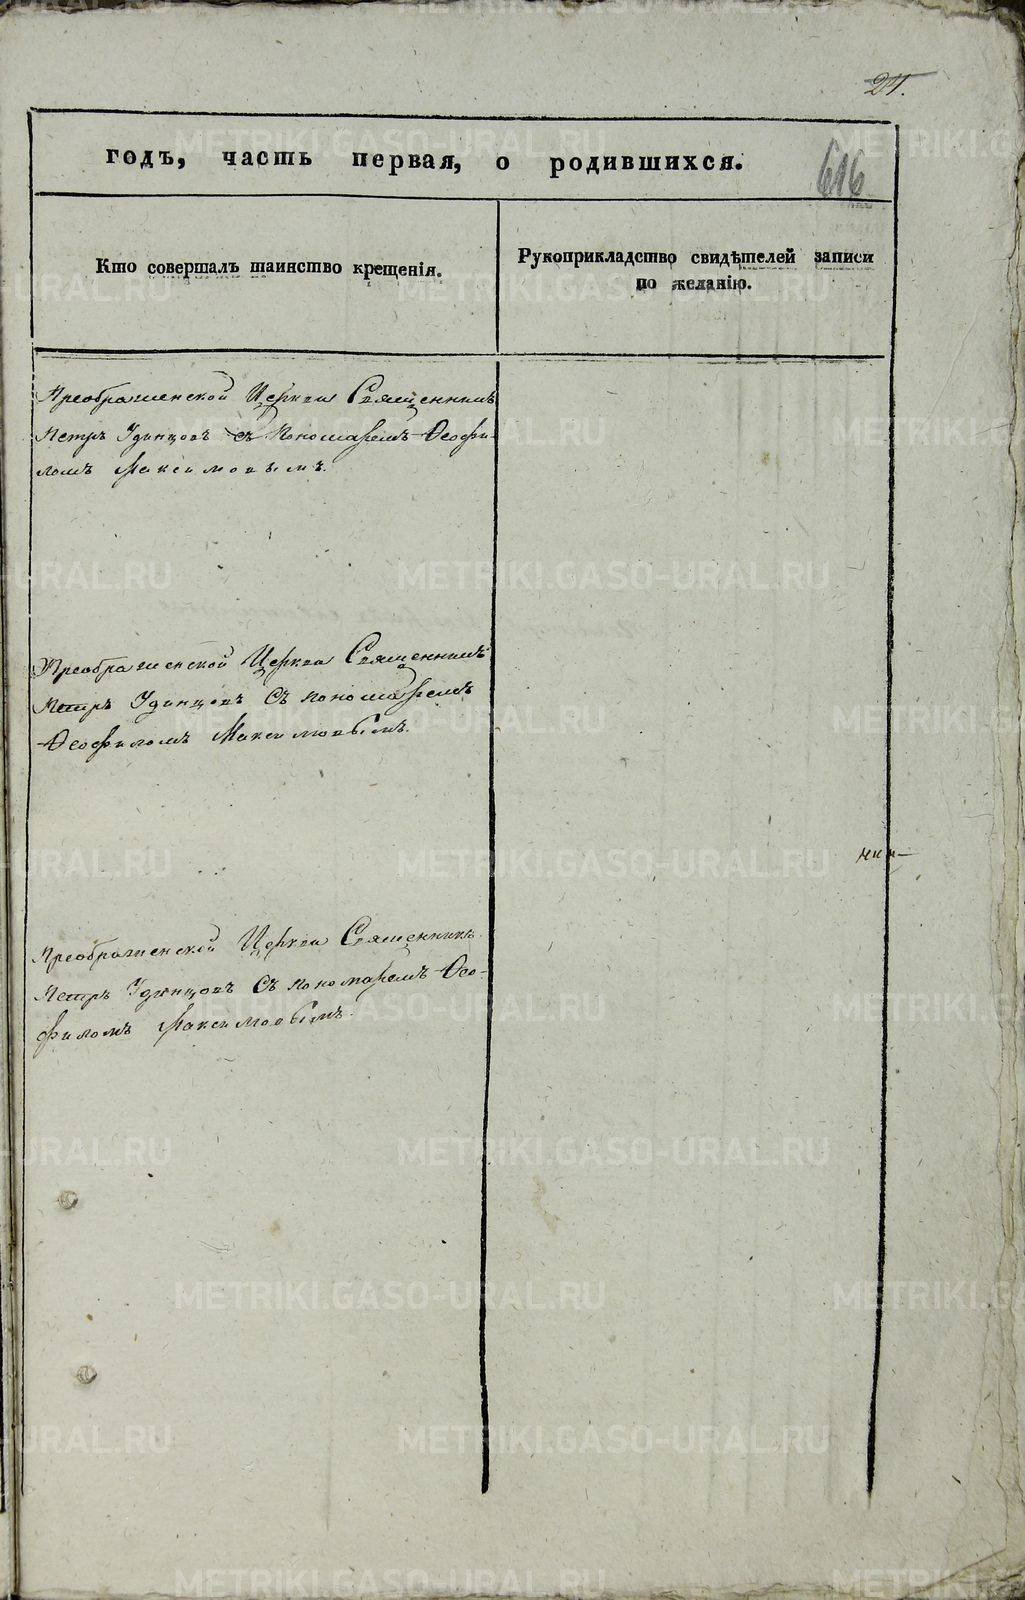 24.
годъ, часть первая, о родившихся.
616
Кто совершалъ таинство крещенія.
Рукоприкладство свидѣтелей записи
по желанію.
Преображенской Церкви Священникъ
Петръ Удинцовъ съ Пономаремъ Ѳеофи-
ломъ Максимовымъ.
Преображенской Церкви Священникъ
Петръ Удинцовъ съ пономаремъ
Ѳеофиломъ Максимовымъ.
Преображенской Церкви Священникъ
Петръ Удинцовъ съ пономаремъ Ѳео-
филомъ Максимовымъ.
METRIKI.GASO-URAL.RU